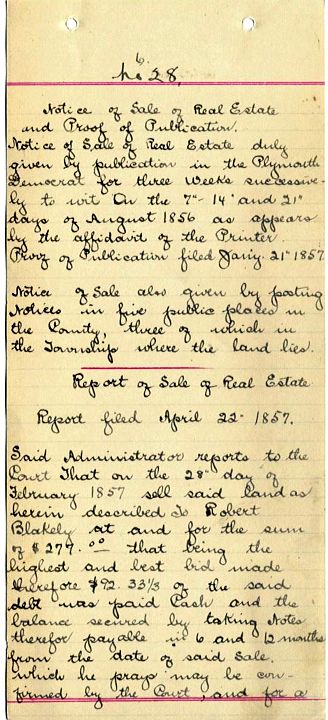 6
No 28.
Notice of Sale of Real Estate
and Proof of Publication.
Notice of Sale of Real Estate duly
given by publication in the Plymouth
Democrat for three Weeks successive-
ly to wit On the 7" - 14" and 21"
days of August 1856 as appears
by the affidavit of the Printer
Proof of Publication filed Jany. 21" 1857
Notice of Sale also given by posting
Notices in five public places in
the County, three of which in
the Township where the land lies.
Report of Sale of Real Estate
Report filed April 22" 1857.
Said Administrator reports to the
Court That on the 28" day of
February 1857 sell said land as
herein described To Robert
Blakely at and for the sum
of $277.00 that being the
highest and best bid made
therefore $92.33⅓ of the said
debt was paid Cash and the
balance secured by taking Notes
therefor payable in 6 and 12 months
from the date of said Sale.
Which he prays may be con-
firmed by the Court, and for a